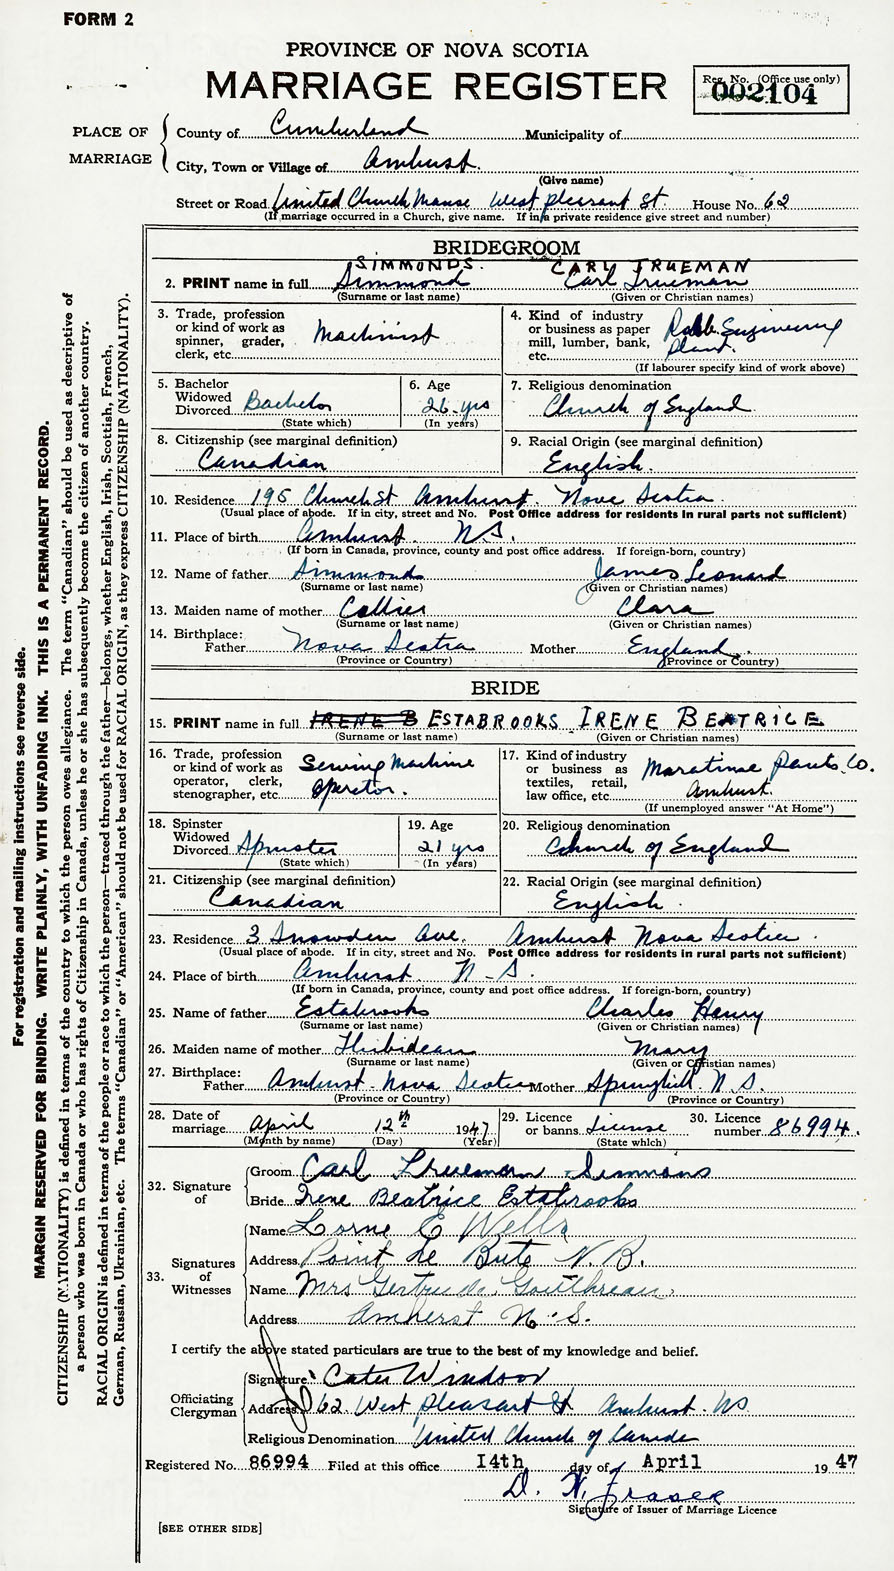 FORM 2
PROVINCE OF NOVA SCOTIA
MARRIAGE REGISTER
Reg. No. (Office use only)
002104
PLACE OF MARRIAGE
County of Cumberland Municipality of
City, Town or Village of Amherst.
(Give name)
Street or Road United Church Manse West Pleasant St. House No. 62
(If marriage occurred in a Church, give name. If in a private residence give street and number)
BRIDEGROOM
SIMMONDS. CARL TRUEMAN
2. PRINT name in full Simmond Carl Trueman
(Surname or last name) (Given or Christian names)
3. Trade, profession or kind of work as spinner, grader, clerk, etc. Machinist
4. Kind of industry or business as paper mill, lumber, bank, etc. Robb Engineering Plant.
(If labourer specify kind of work above)
5. Bachelor Widowed Divorced Bachelor
(State which)
6. Age 26 yrs
(In years)
7. Religious denomination
Church of England
8. Citizenship (see marginal definition)
Canadian
9. Racial Origin (see marginal definition)
English.
10. Residence 195 Church St Amherst. Nova Scotia.
(Usual place of abode. If in city, street and No. Post Office address for residents in rural parts not sufficient)
11. Place of birth Amherst. N.S.
(If born in Canada, province, county and post office address. If foreign-born, country)
12. Name of father Simmonds James Leonard
(Surname or last name) (Given or Christian names)
13. Maiden name of mother Collier Clara
(Surname or last name) (Given or Christian names)
14. Birthplace:
Father Nova Scotia Mother England.
(Province or Country) (Province or Country)
BRIDE
15. PRINT name in full IRENE B ESTABROOKS IRENE BEATRICE
(Surname or last name) (Given or Christian names)
16. Trade, profession or kind of work as operator, clerk, stenographer, etc. Sewing Machine Operator.
17. Kind of industry or business as textiles, retail, law office, etc. Maratime Pants Co. Amherst.
(If unemployed answer "At Home")
18. Spinster Widowed Divorced Spinster
(State which)
19. Age 21 yrs
(In years)
20. Religious denomination
Church of England
21. Citizenship (see marginal definition)
Canadian
22. Racial Origin (see marginal definition)
English.
23. Residence 3 Snowden Ave. Amherst Nova Scotia.
(Usual place of abode. If in city, street and No. Post Office address for residents in rural parts not sufficient)
24. Place of birth Amherst N.S.
(If born in Canada, province, county and post office address. If foreign-born, country)
25. Name of father Estabrooks Charles Henry
(Surname or last name) (Given or Christian names)
26. Maiden name of mother Thibideau Mary
(Surname or last name) (Given or Christian names)
27. Birthplace:
Father Amherst Nova Scotia Mother Springhill N.S.
(Province or Country) (Province or Country)
28. Date of marriage April 12th 1947
(Month by name) (Day) (Year)
29. Licence or banns License
(State which)
30. Licence number 86994.
32. Signature of
Groom Carl Trueman Simmons
Bride Irene Beatrice Estabrooks
33. Signatures of Witnesses
Name Lorne E Wells
Address Point de Bute N.B.
Name Mrs Gertrude Gouthreau.
Address Amherst N.S.
I certify the above stated particulars are true to the best of my knowledge and belief.
Officiating Clergyman
Signature Cater Windsor
Address 62 West Pleasant St Amherst. NS
Religious Denomination United Church of Canada
Registered No. 86994 Filed at this office 14th day of April 19 47
D. W. Fraser
Signature of Issuer of Marriage Licence
[SEE OTHER SIDE]
For registration and mailing instructions see reverse side.
MARGIN RESERVED FOR BINDING. WRITE PLAINLY, WITH UNFADING INK. THIS IS A PERMANENT RECORD.
CITIZENSHIP (NATIONALITY) is defined in terms of the country to which the person owes allegiance. The term "Canadian" should be used as descriptive of
a person who was born in Canada or who has rights of Citizenship in Canada, unless he or she has subsequently become the citizen of another country.
RACIAL ORIGIN is defined in terms of the people or race to which the person—traced through the father—belongs, whether English, Irish, Scottish, French,
German, Russian, Ukrainian, etc. The terms "Canadian" or "American" should not be used for RACIAL ORIGIN, as they express CITIZENSHIP (NATIONALITY).